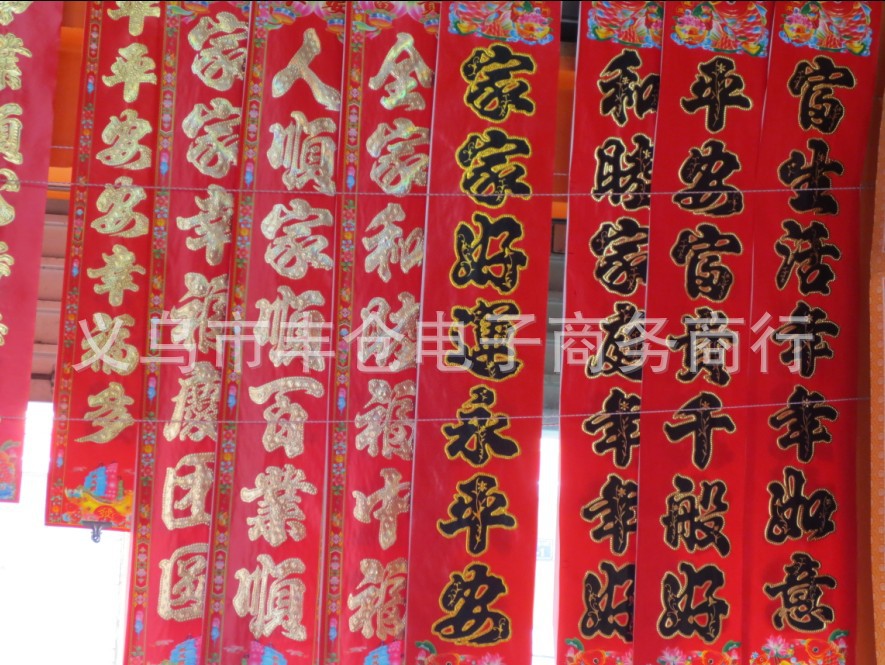 富生活年年如意
平安富贵千般好
和睦家庭年年好
家家好運永平安
全家和睦福中福
人順家順百業順
家家幸福慶团圆
平平安安幸福多
義乌市丰仓电子商务商行